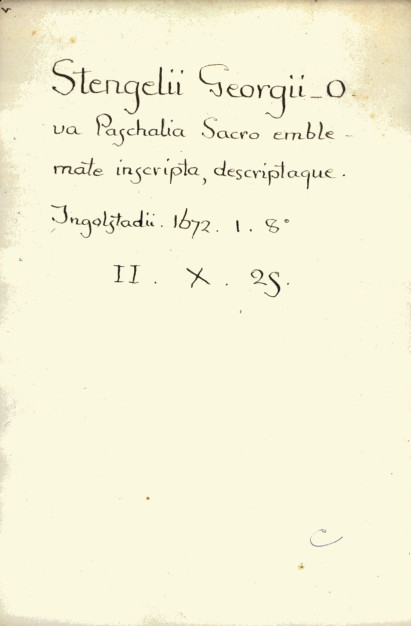 Stengelii Georgii_O
va Paschalia Sacro emble-
mate inscripta, descriptaque.
Ingolstadii. 1672. 1. 8°
II. X. 25.
C